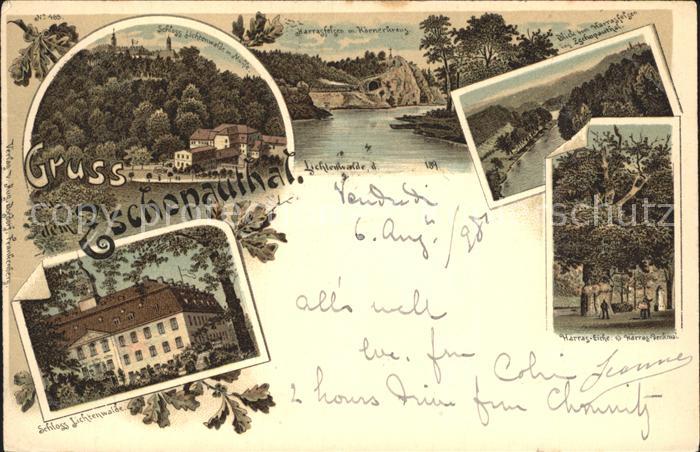 No. 485.
Schloss Lichtenwalde m. Mühle
Harrasfelsen m. Körnerkreuz
Blick vom Harrasfelsen
ins Zschopauthal.
Gruss
a. dem
Zschopauthal.
Lichtenwalde d. 189
Vendredi
6. Aug. /98
all's well
love. from
Colin Jeanne
2 hours Drive from Chemnitz
Harras-Eiche. Harras-Denkmal.
Schloss Lichtenwalde.
Verlag v. Frankenberg